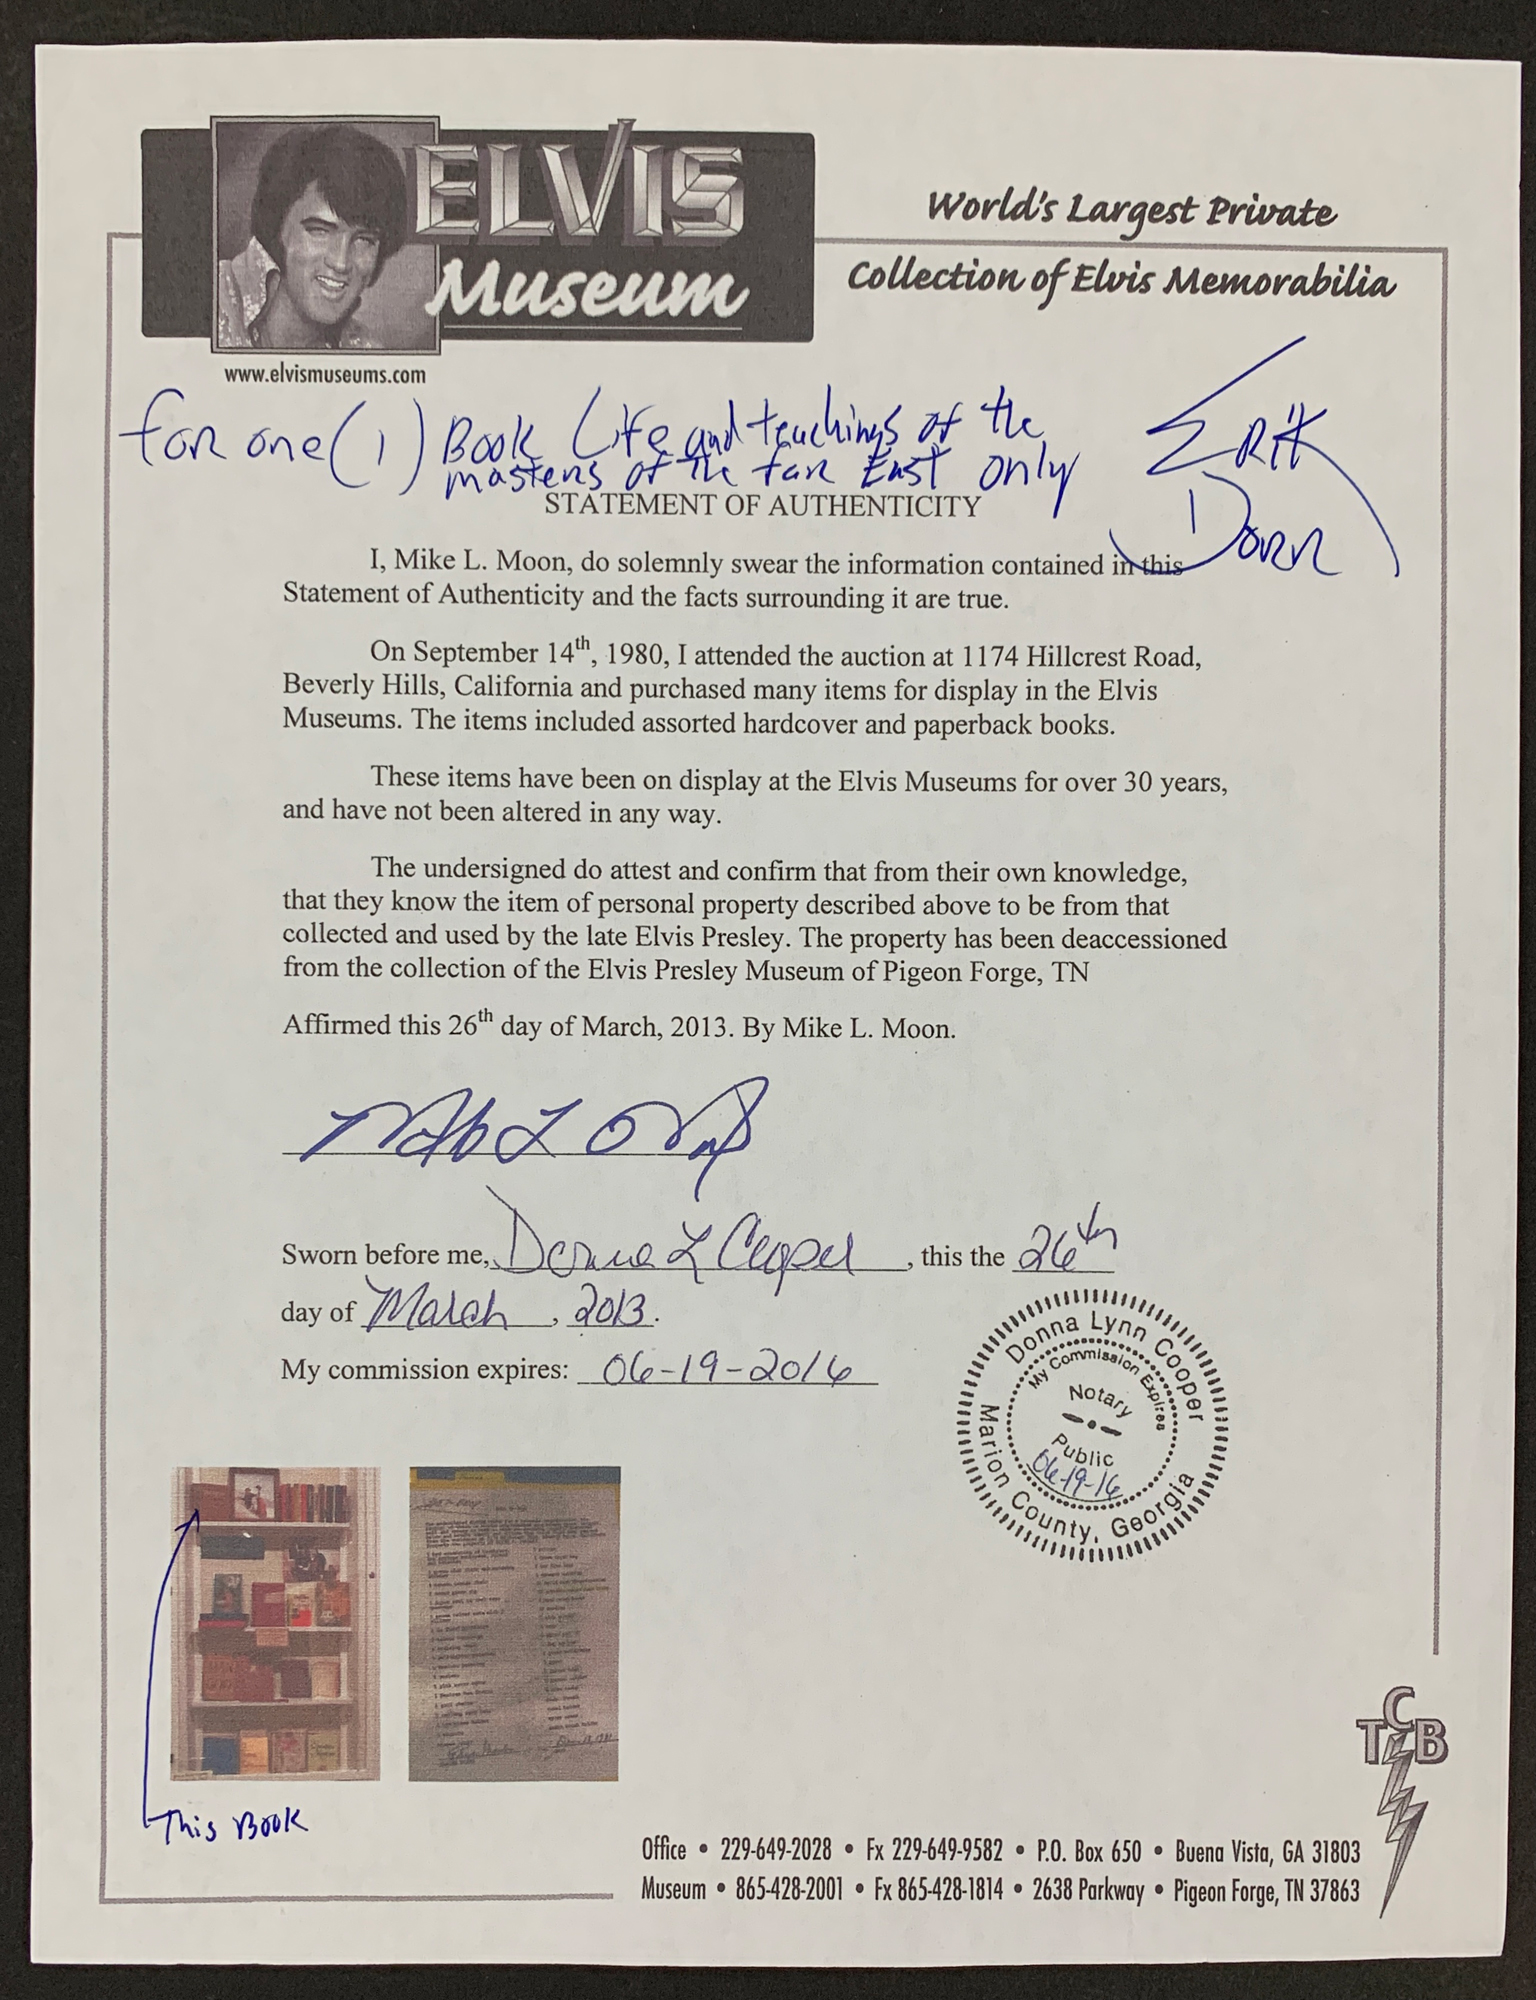 ELVIS
Museum
World's Largest Private
Collection of Elvis Memorabilia
www.elvismuseums.com
for one (1) Book Life and teachings of the
masters of the far East only
Erik
Dorn
STATEMENT OF AUTHENTICITY
I, Mike L. Moon, do solemnly swear the information contained in this
Statement of Authenticity and the facts surrounding it are true.
On September 14th, 1980, I attended the auction at 1174 Hillcrest Road,
Beverly Hills, California and purchased many items for display in the Elvis
Museums. The items included assorted hardcover and paperback books.
These items have been on display at the Elvis Museums for over 30 years,
and have not been altered in any way.
The undersigned do attest and confirm that from their own knowledge,
that they know the item of personal property described above to be from that
collected and used by the late Elvis Presley. The property has been deaccessioned
from the collection of the Elvis Presley Museum of Pigeon Forge, TN
Affirmed this 26th day of March, 2013. By Mike L. Moon.
Sworn before me, Donna L Cooper, this the 26th
day of March, 2013.
My commission expires: 06-19-2016
Donna Lynn Cooper
My Commission Expires
Notary
Public
06-19-16
Marion County, Georgia
This Book
TCB
Office • 229-649-2028 • Fx 229-649-9582 • P.O. Box 650 • Buena Vista, GA 31803
Museum • 865-428-2001 • Fx 865-428-1814 • 2638 Parkway • Pigeon Forge, TN 37863